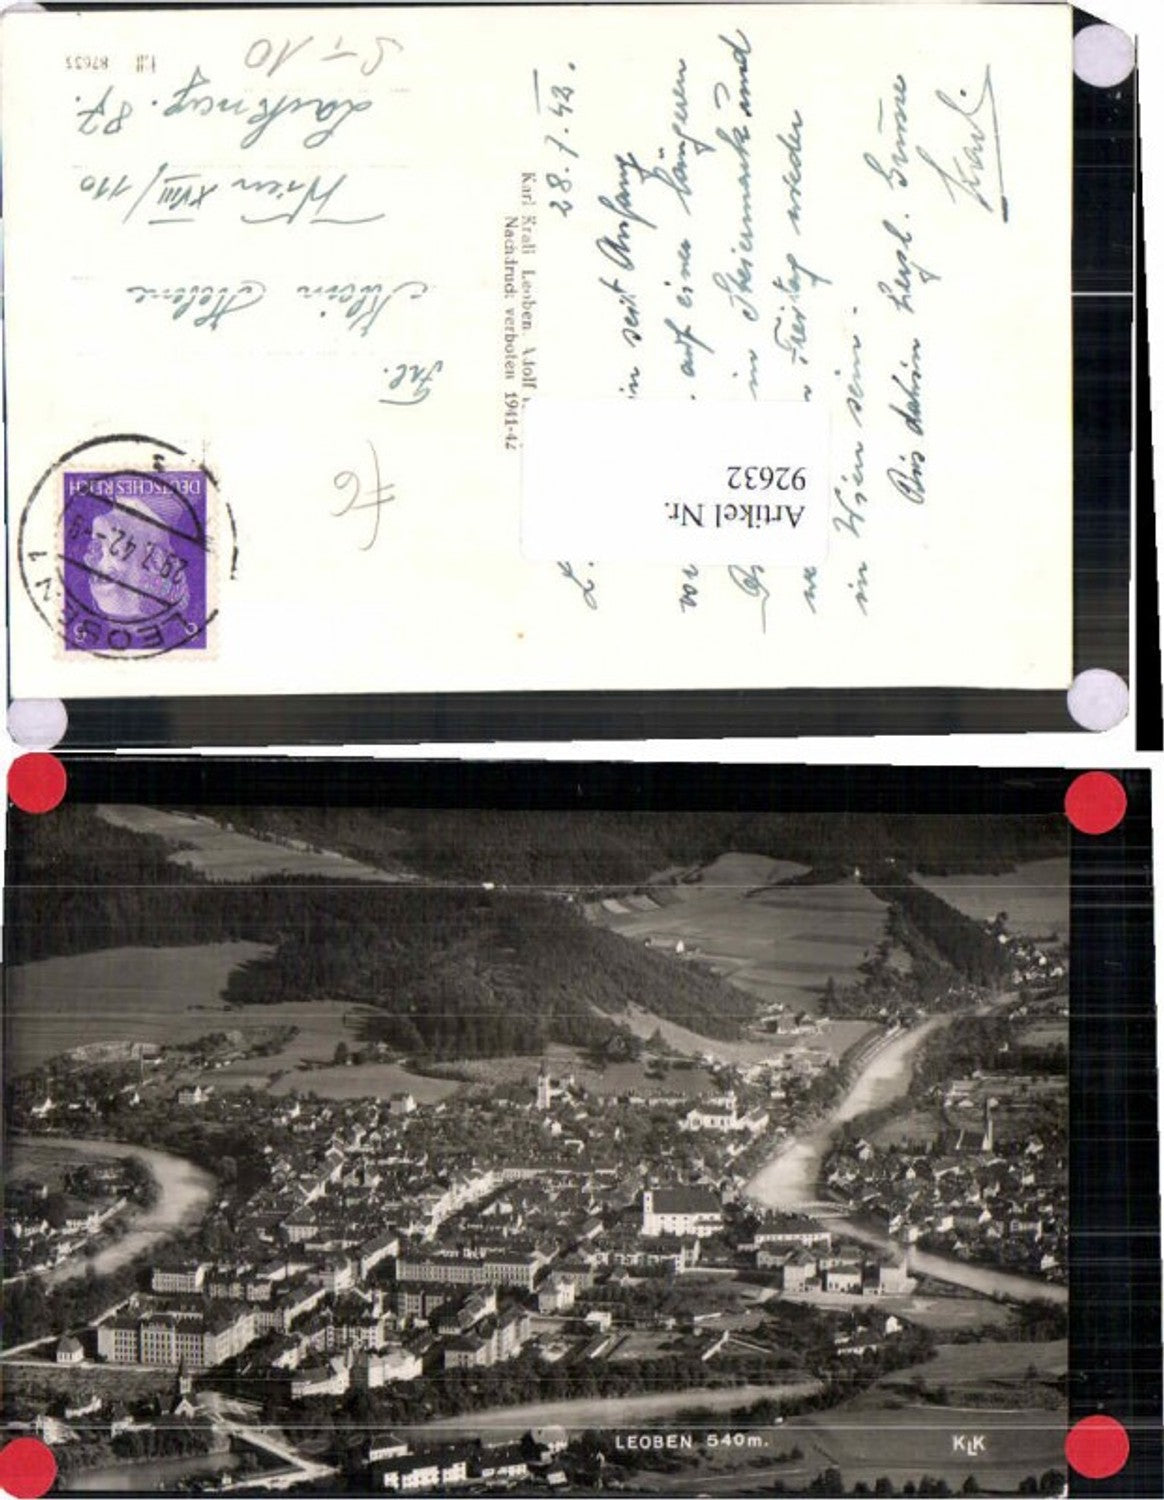 28.7.42.
in seit Anfang
auf einer längeren
in Steiermark und
Freitag wieder
in Wien sein.
Bis dahin herzl. Grüsse
Karl.
Karl Krall Leoben, Adolf
Nachdruck verboten 1941-42
Artikel Nr.
92632
Frl.
Klein Helene
Wien XVIII/110
87.
S-10
87633
F6
DEUTSCHES REICH
6
29.7.42.
LEOBEN 1
LEOBEN 540m.
KLK